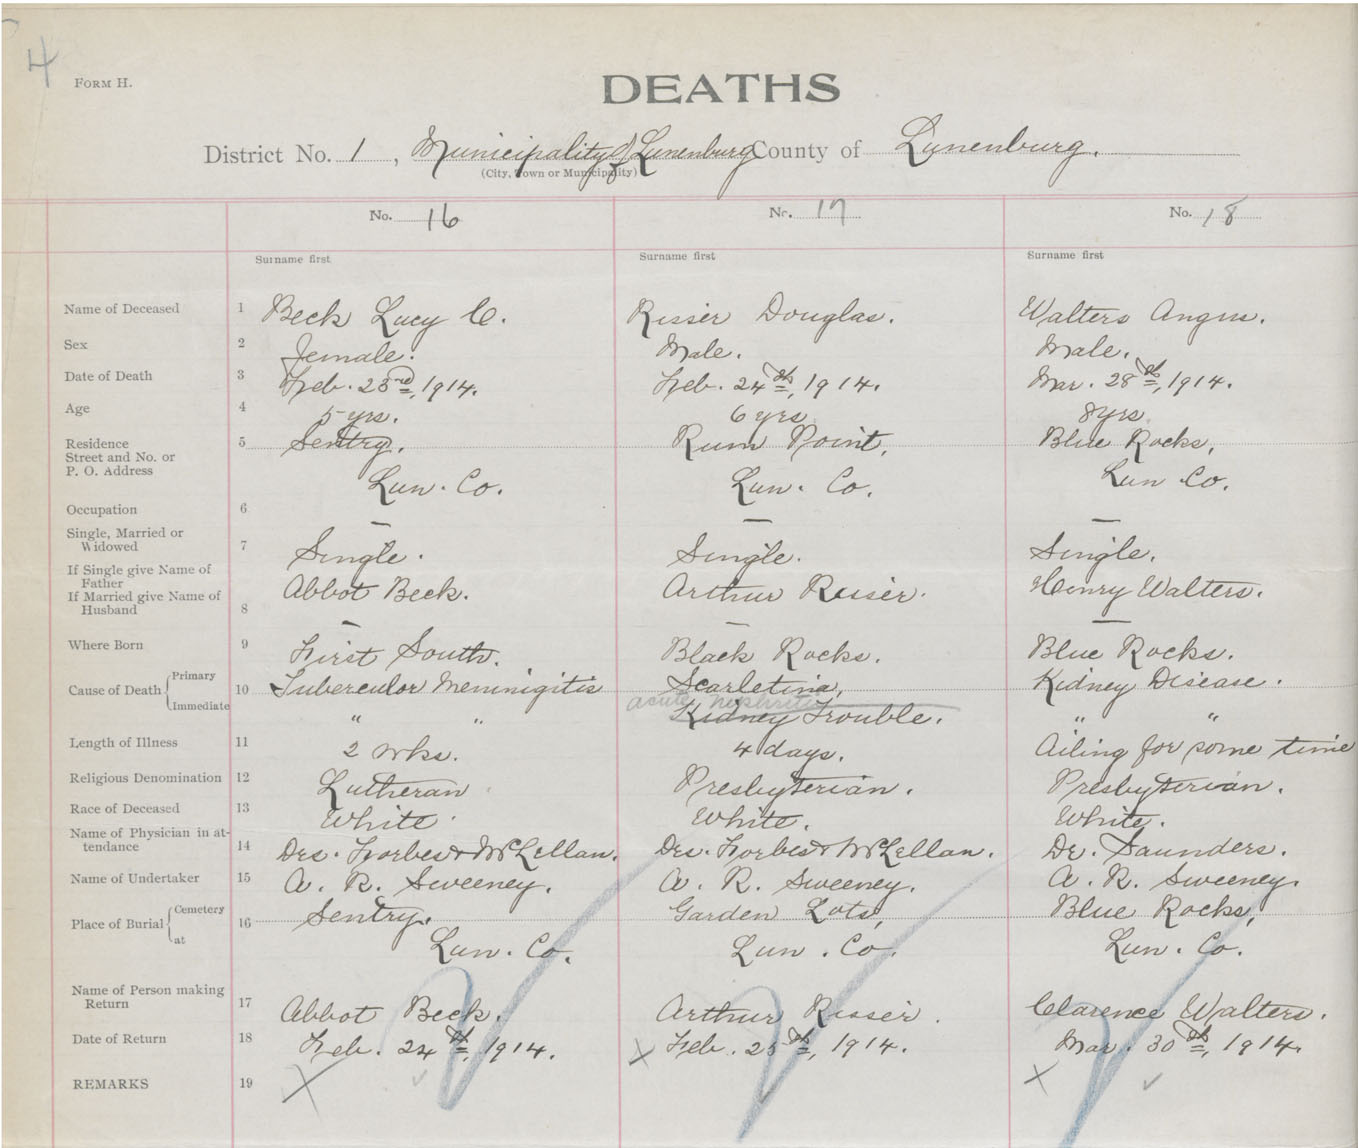 4
FORM H.
DEATHS
District No. 1, Municipality of Lunenburg County of Lunenburg.
(City, Town or Municipality)
No. 16 No. 17 No. 18
Surname first Surname first Surname first
Name of Deceased 1 Beck Lucy C. Risser Douglas. Walters Angus.
Sex 2 Female. Male. Male.
Date of Death 3 Feb. 23rd, 1914. Feb. 24th, 1914. Mar. 28th, 1914.
Age 4 5 yrs. 6 yrs 8 yrs.
Residence
Street and No. or
P. O. Address 5 Sentry, Rum Point, Blue Rocks,
Lun. Co. Lun. Co. Lun Co.
Occupation 6 — — —
Single, Married or
Widowed 7 Single. Single. Single.
If Single give Name of
Father Abbot Beck. Arthur Risser. Henry Walters.
If Married give Name of
Husband 8 — — —
Where Born 9 First South. Black Rocks. Blue Rocks.
Cause of Death { Primary 10 Tubercular Meninigitis Scarletina, Kidney Disease.
acute nephritis
Immediate " " Kidney Trouble. " "
Length of Illness 11 2 wks. 4 days. Ailing for some time
Religious Denomination 12 Lutheran Presbyterian. Presbyterian.
Race of Deceased 13 White. White. White.
Name of Physician in at-
tendance 14 Drs. Forbes & McLellan. Drs. Forbes & McLellan. Dr. Saunders.
Name of Undertaker 15 A. R. Sweeney. A. R. Sweeney. A. R. Sweeney.
Place of Burial { Cemetery
at 16 Sentry, Garden Lots, Blue Rocks,
Lun. Co. Lun. Co. Lun. Co.
Name of Person making
Return 17 Abbot Beck. Arthur Risser. Clarence Walters.
Date of Return 18 Feb. 24th, 1914. Feb. 25th, 1914. Mar. 30th, 1914.
REMARKS 19